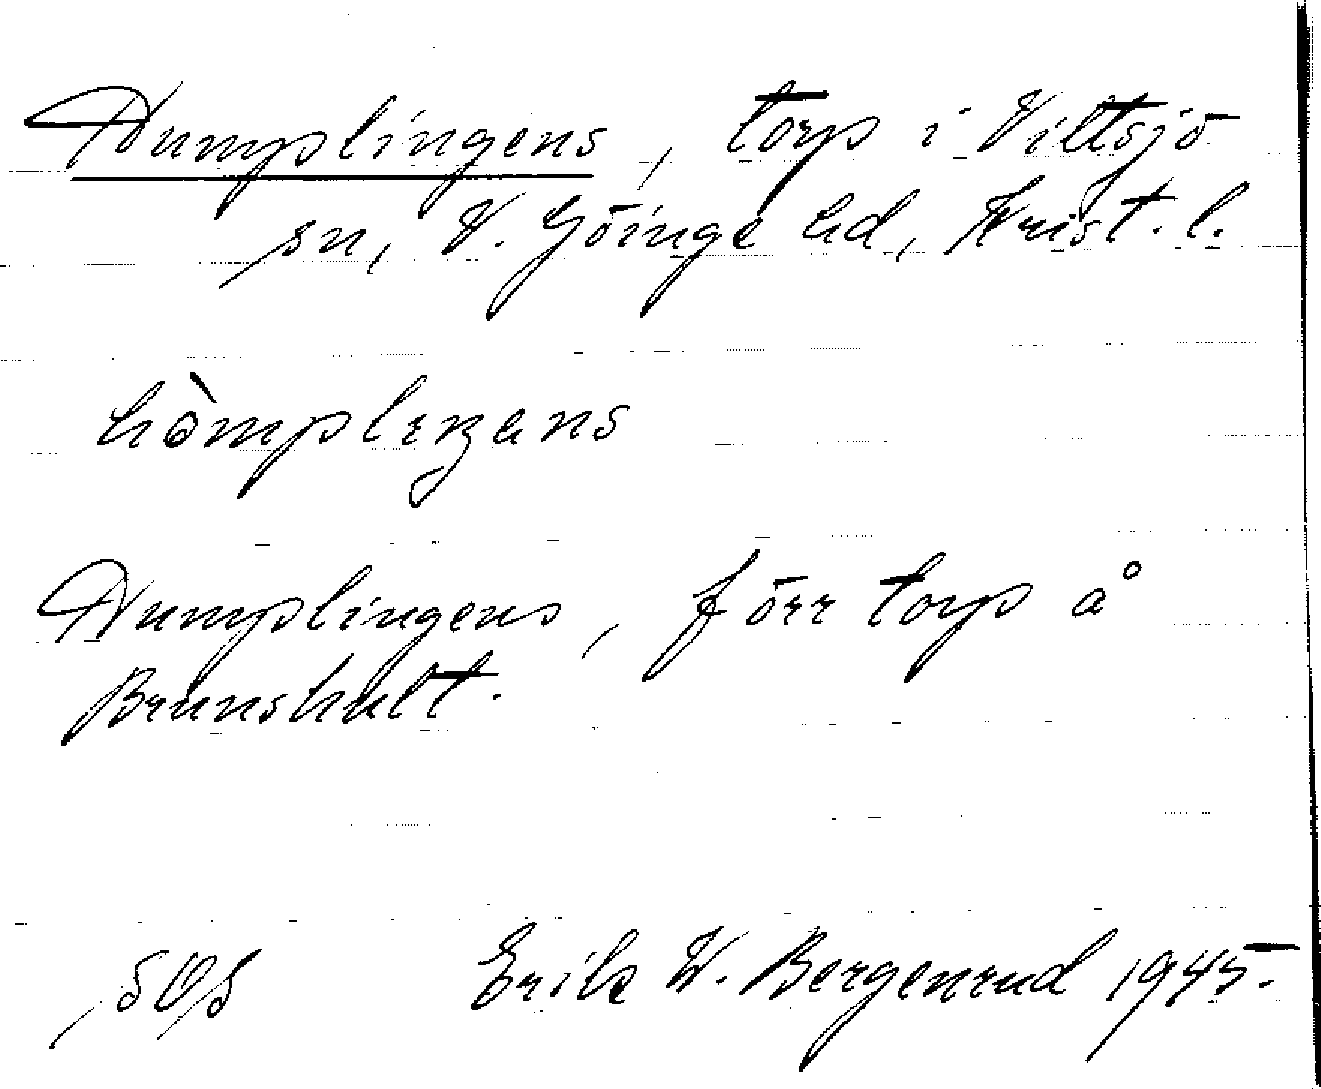 Humplingens, torp i Vittsjö
sn, V. Göinge hd, Krist. l.
hòmplıŋans
Humplingens, förr torp å
Brunshult.
Erik W. Bergenrud 1945.